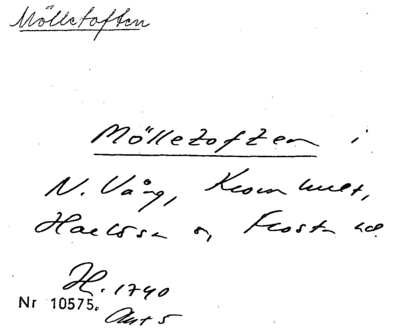 Mölletoften
Mölletoften i
N. Vång, Kromhult,
Harlösa o, Frosta hd.
H. 1740
Nr 10575.
Akt 5